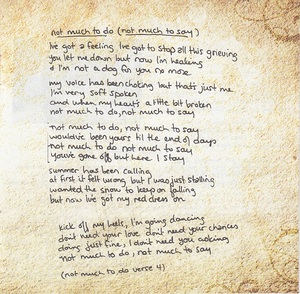 not much to do (not much to say)
I've got a feeling I've got to stop all this grieving
you let me down but now I'm healing
& I'm not a dog for you no more
my voice has been choking but that's just me
I'm very soft spoken
and when my heart's a little bit broken
not much to do, not much to say
not much to do, not much to say
would've been yours til the end of days
not much to do not much to say
you've gone off, but here I stay
summer has been calling
at first it felt wrong but I was just stalling
wanted the snow to keep on falling
but now I've got my red dress on
kick off my heels, I'm going dancing
don't need your love don't need your chances
doing just fine, I don't need you asking
not much to do, not much to say
(not much to do verse 4)